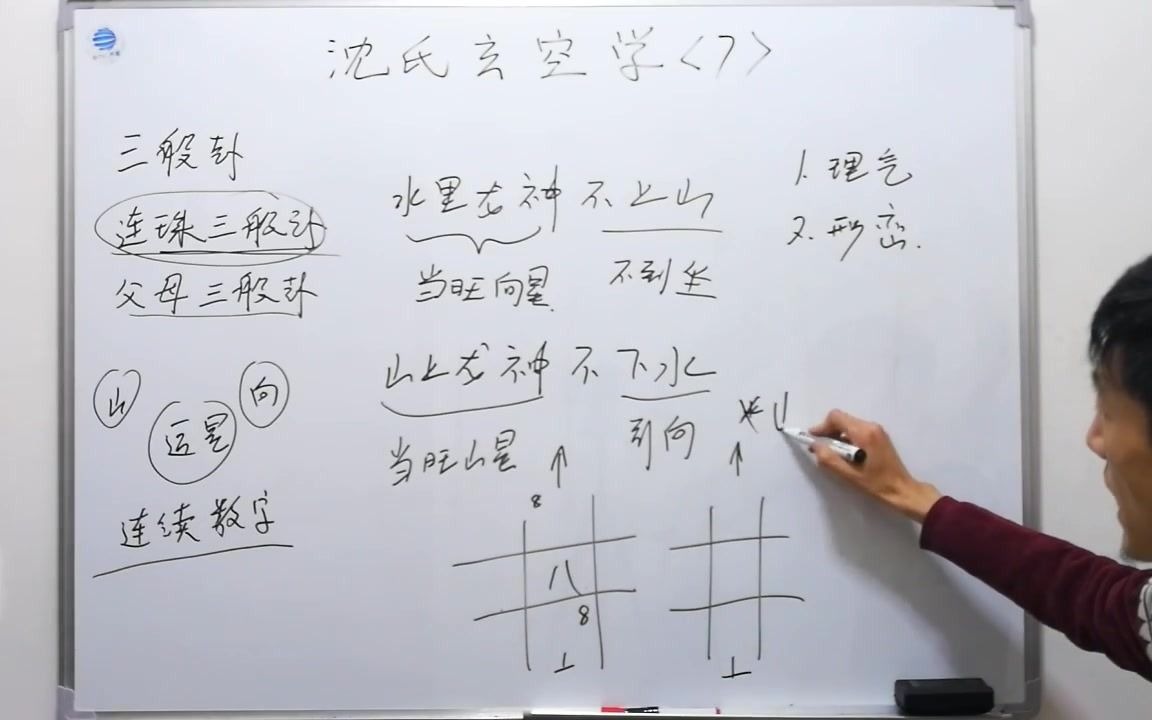 沈氏玄空学<7>
三般卦
连珠三般卦
父母三般卦
山
运星
向
连续数字
水里龙神不上山
当旺向星
不到坐
山上龙神不下水
当旺山星
到向
1.理气
2.形峦.
8
八
8